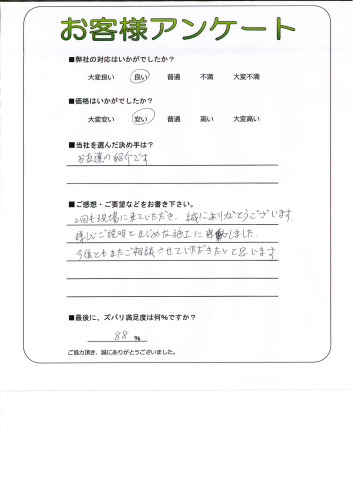 お客様アンケート
■弊社の対応はいかがでしたか？
大変良い 良い 普通 不満 大変不満
■価格はいかがでしたか？
大変安い 安い 普通 高い 大変高い
■当社を選んだ決め手は？
お友達の紹介です
■ご感想・ご要望などをお書き下さい。
2回も現場に来ていただき、誠にありがとうございます。
ご説明とまじめな施工に感動しました。
今後ともまたご相談させていただきたいと思います
■最後に、ズバリ満足度は何％ですか？
88 ％
ご協力頂き、誠にありがとうございました。